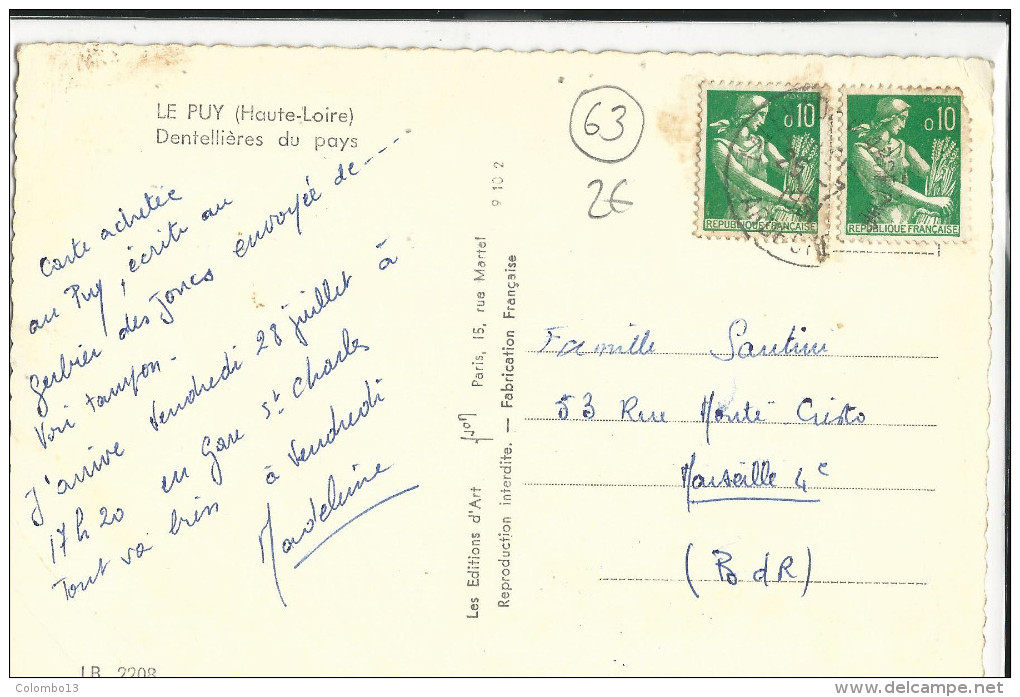 LE PUY (Haute-Loire)
Dentellières du pays
63
2€
POSTES
0,10
REPUBLIQUE FRANÇAISE
POSTES
0,10
REPUBLIQUE FRANÇAISE
Carte achetée
au Puy, écrite au
Gerbier des Joncs envoyée de ---
Voir tampon -
J'arrive Vendredi 28 juillet à
17h20 en Gare St Charles
Tout va bien à Vendredi
Madeleine
Les Editions d'Art Paris, 15, rue Martel 9 10 2
Reproduction interdite. — Fabrication Française
Famille Santini
53 Rue Monté Cristo
Marseille 4e
(B d R)
LB 2208
Colombo13
delcampe.net